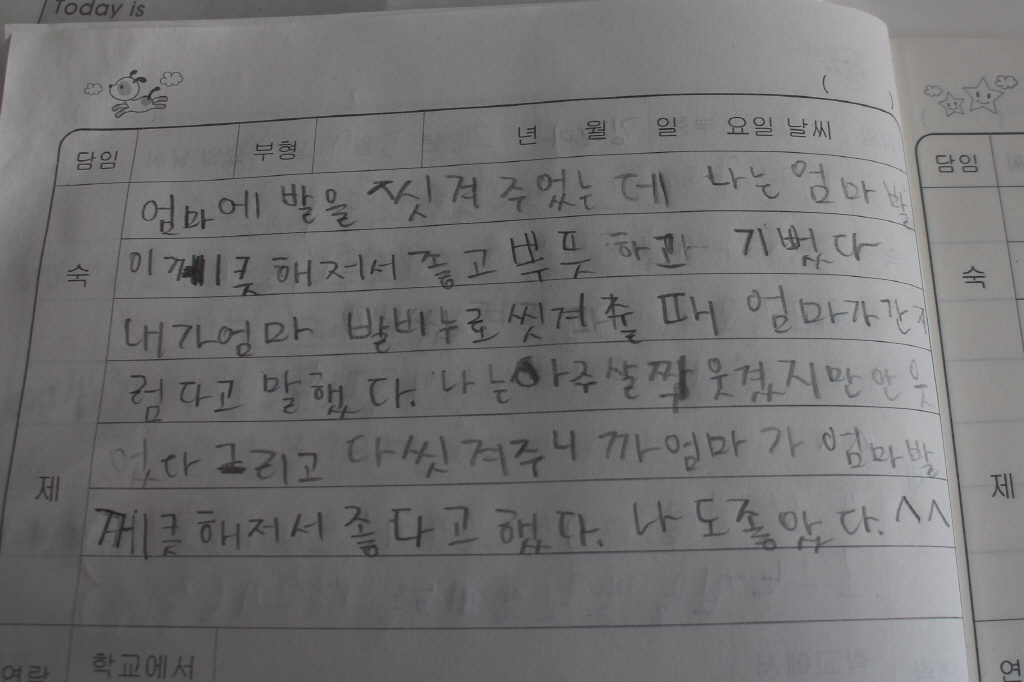 Today is
담임 부형 년 월 일 요일 날씨
엄마에 발을 씻겨 주었는 데 나는 엄마 발
이 께긋 해저서 좋고 뿌듯 하고 기뻤다
내가 엄마 발바누로 씻겨 줄 때 엄마가 간지
럼 다고 말했 다. 나 는 아주 살짝 웃겼지만 안 웃
었다 그리고 다 씻 겨주니 까 엄마 가 엄마 발
께긋 해저서 좋 다고 했다. 나 도 좋 았다. ^^
숙
제
학교에서
연락
담임
숙
제
연